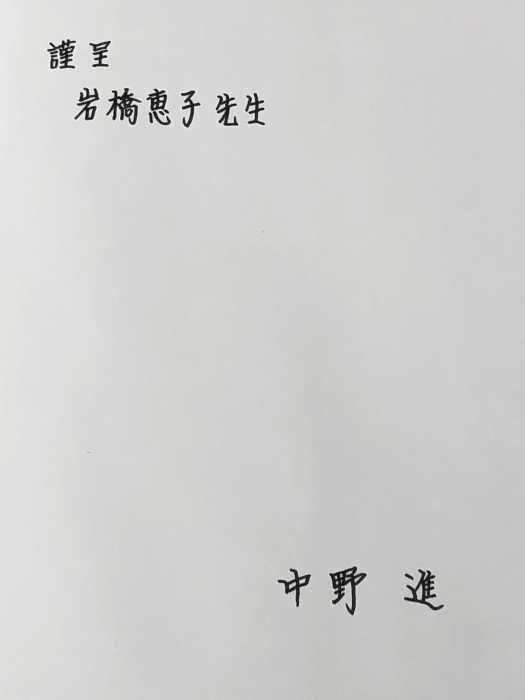 謹呈
岩橋恵子先生
中野 進